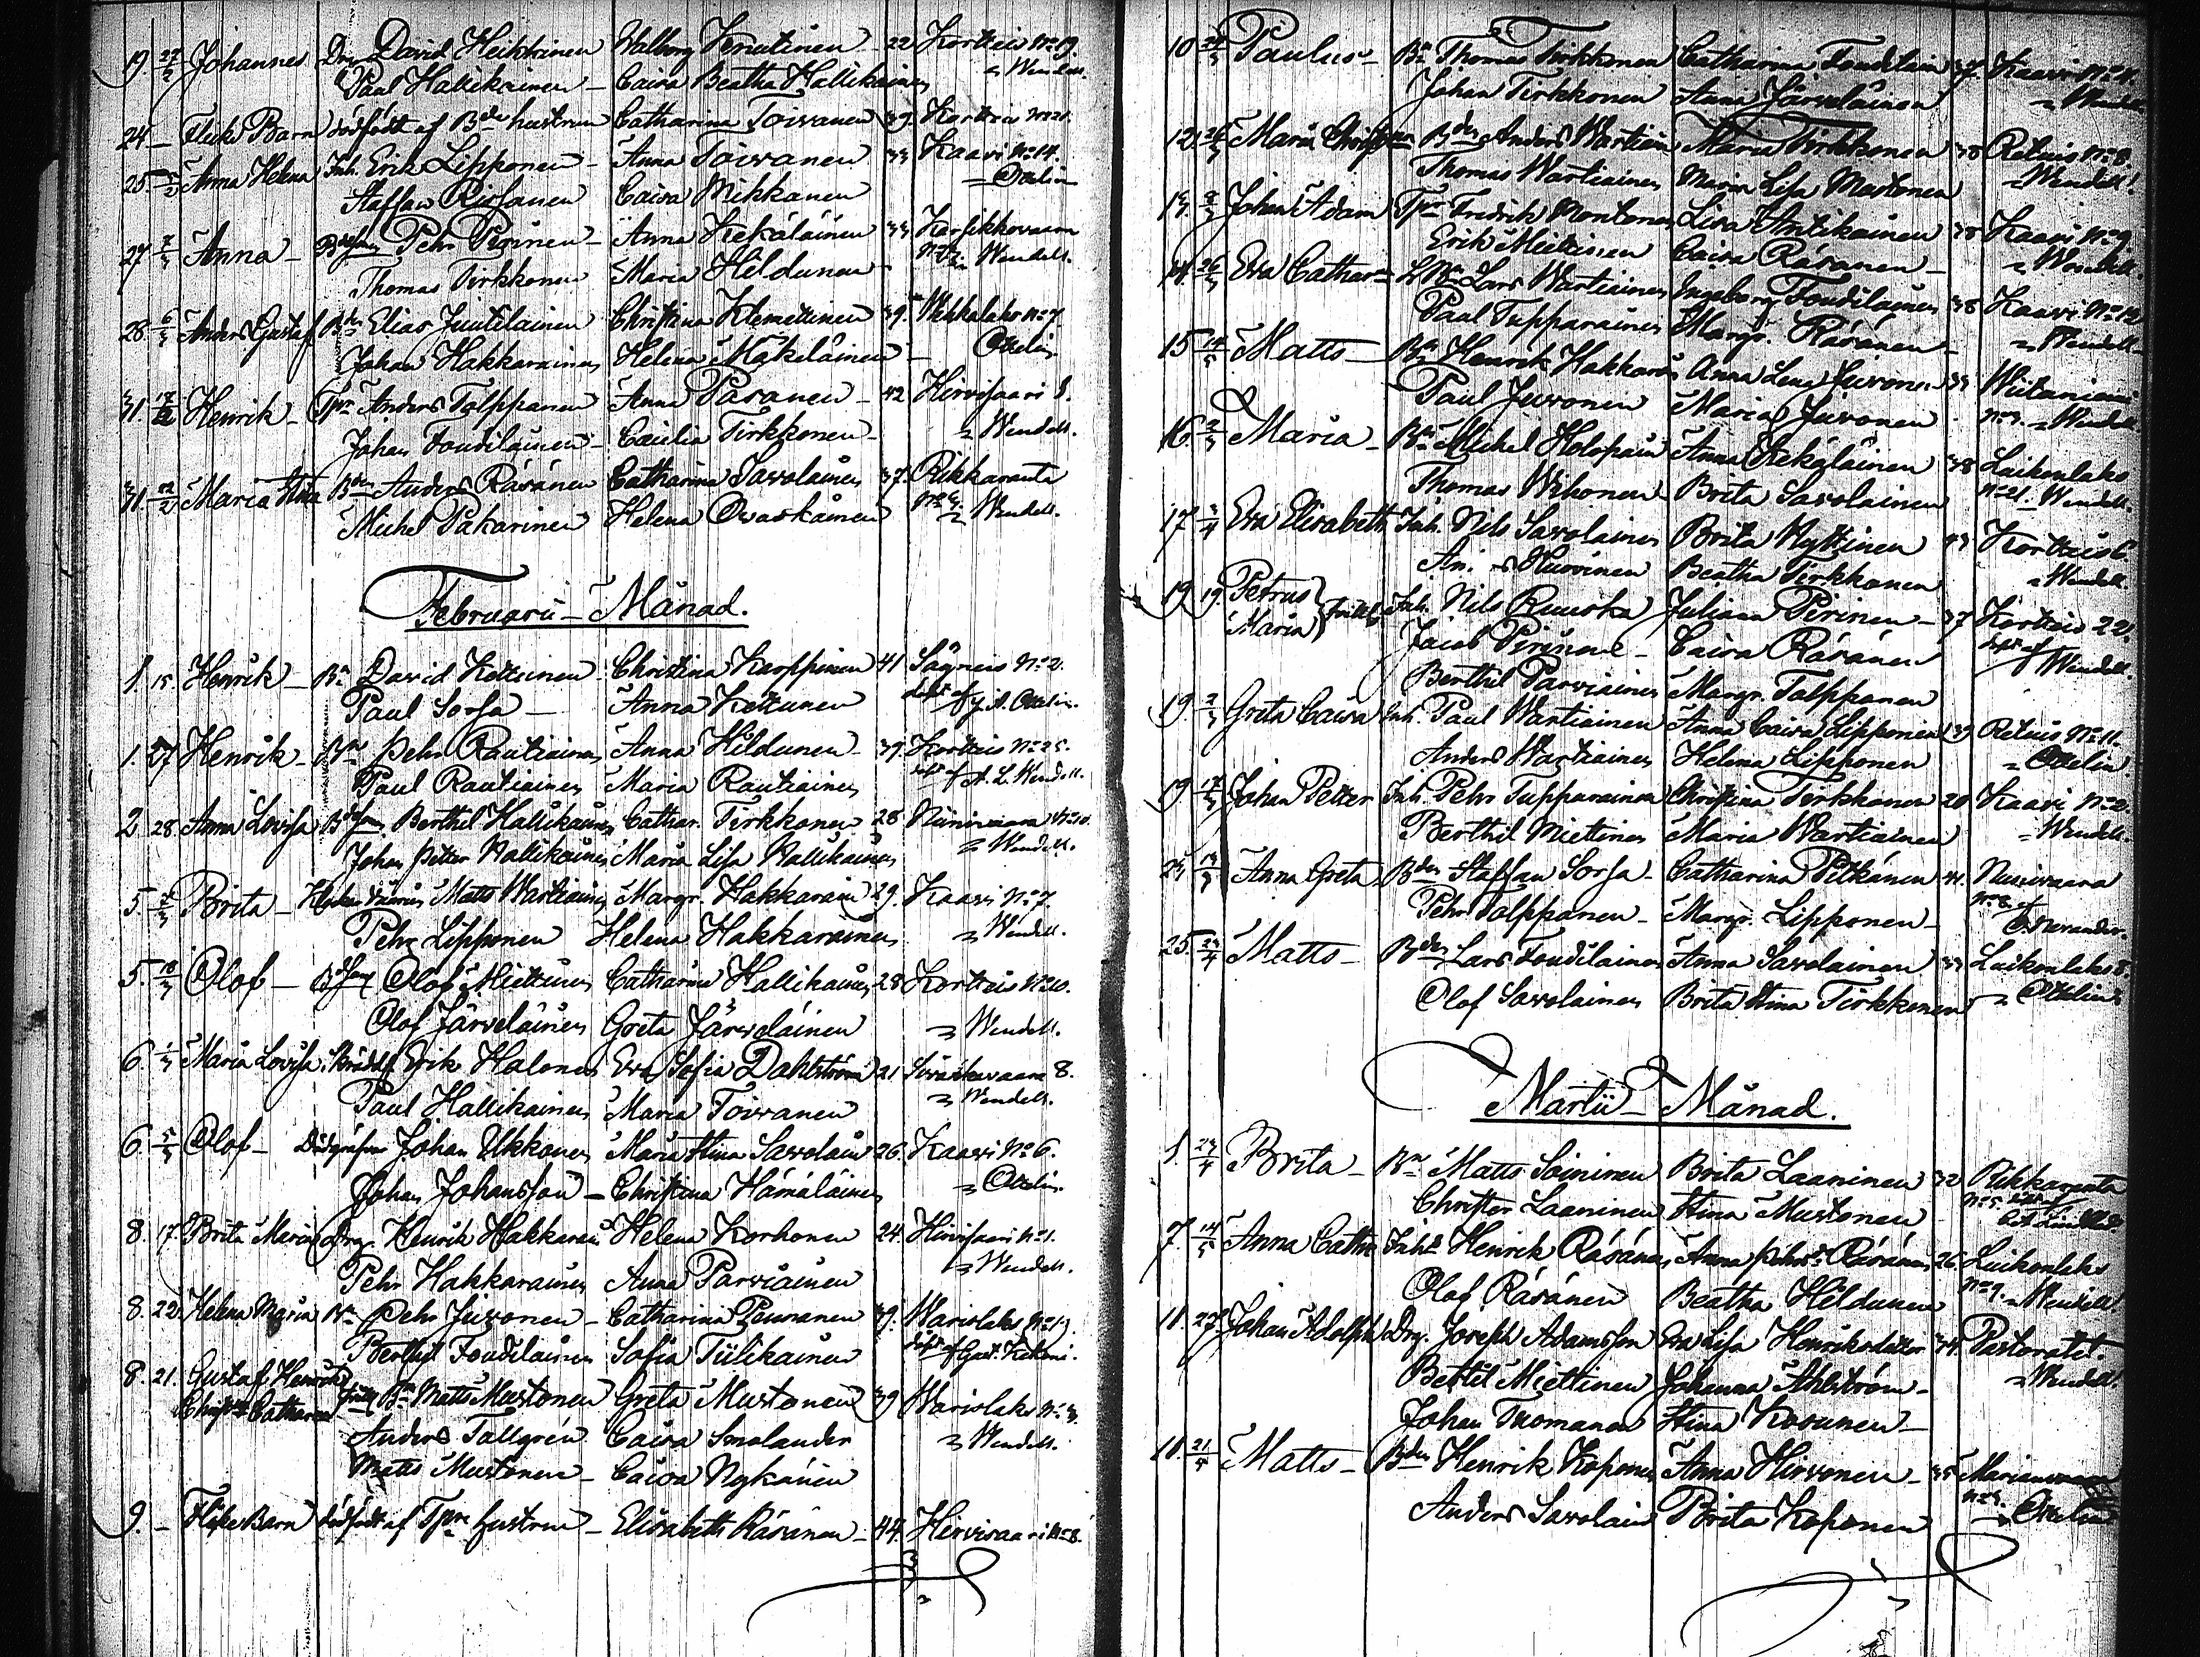 19. 27/2 Johannes Drg David Heikkinen Walborg Knuutinen 22 Kortteis No 19.
Paul Hallikainen Caisa Beatha Hallikainen Wendell.
24 Flicke Barn dödfödt af Bde hustrun Catharina Toivanen 39. Kortteis No 21.
25 Anna Helena Inh. Erik Lipponen Anna Toivanen 33 Kaavi No 14.
Staffan Rissanen Caisa Mikkanen Ottelin
27 Anna Pehr Pirinen Anna Kekäläinen 33 Karsikkovaara
Thomas Tirkkonen Maria Hildunen Wendell.
28 6/3 Anders Gustaf Bde Elias Juutilainen Christina Klemettinen 39. Wehkalaks No 7
Johan Hakkarainen Helena Mäkeläinen Ottelin
31. Henrik Tpr Anders Tolppanen Anna Pasanen 42 Hirvisaari 1.
Johan Foudilainen Caicilia Tirkkonen Wendell.
31. Maria Stina Bde Anders Räsänen Catharina Savolainen 37. Rikkaranta
Michel Pakarinen Helena Ovaskainen Wendell.
Februarii Månad.
1. 15. Henrik Bn David Kettunen Christina Karppinen 41 Sägneis No 2.
Paul Sorsa Anna Kettunen döpt af J. A. Ottelin.
1. 27 Henrik Bn Pehr Rautiainen Anna Hildunen 39. Kortteis No 25.
Paul Rautiainen Maria Rautiainen döpt af A. L. Wendell.
2 28. Anna Lovisa Berthil Hallikainen Cathar. Tirkkonen 28 Niinivaara No 10.
Johan Petter Hallikainen Maria Lisa Hallikainen Wendell.
5. 2/3 Brita Matts Wartiainen Margr. Hakkarain 29. Kaavi No 7.
Pehr Lipponen Helena Hakkarainen Wendell.
5. 18/3 Olof Olof Miettinen Catharina Hallikainen 28 Kortteis No 10.
Olof Järveläinen Greta Järveläinen Wendell.
6. 1/3 Maria Lovisa Erik Halonen Eva Sofia Dahlström 21 Siväkkavaara 8.
Paul Hallikainen Maria Toivanen Wendell.
6. 5/3 Olof Dödgräfvar Johan Ukkonen Maria Stina Savolain 26. Kaavi No 6.
Johan Johansson Christina Hämäläinen Ottelin
8. 17. Brita Maria Drg. Henrik Hakkarain Helena Korhonen 24. Hirvisaari No 1.
Pehr Hakkarainen Anna Parviainen Wendell.
8. 22. Helena Maria Bn Pehr Juvonen Catharina Peuranen 39. Warislaks No 13
Berthil Foudilainen Sofia Tiilikainen döpt af Gust.
8. 21. Gustaf Henrik Bn Matts Mustonen Greta Mustonen 39 Warislaks No 3.
Catharina
Anders Tallgrén Caisa Smolander Wendell.
Matts Mustonen Caisa Nykänen
9. Flicke Barn dödfödt af Tprs hustrun Elisabeth Räsänen 44. Hirvisaari No 8.
10 Paulus Bn Thomas Tirkkonen Catharina Foudilain 37. Kaavi No 4.
Johan Tirkkonen Anna Järveläinen Wendell
12 Maria Christina Bde Anders Wartiain Maria Tirkkonen 38 Retuis No 8.
Thomas Wartiainen Maria Lisa Mustonen Wendell.
13. Johan Adam Tpr Fredrik Montonen Lisa Antikainen 38 Kaavi No 9.
Erik Miettinen Caisa Räsänen Wendell.
14. 26/3 Eva Cathar. Lars Wartiainen Ingeborg Foudilainen 38 Kaavi No 12
Paul Tupparainen Margr. Räsänen Wendell
15 14/5 Matts Bn Henrik Hakkarain Anna Lena Juvonen 33 Wiitaniemi
Paul Juvonen Maria Juvonen No 3. Wendell
16. 2/3 Maria Bn Michel Holopain Anna Kekäläinen 38 Luikonlaks
Thomas Wihonen Brita Savolainen No 21. Wendell.
17 Eva Elisabeth Inh. Nils Savolainen Brita Nyttinen 33 Kortteis 6.
Huovinen Beatha Tirkkonen Wendell
19 19. Petrus Inh. Nils Ruuska Juliana Pirinen 37 Kortteis 22.
Maria
Jacob Pirinen Caisa Räsänen döpt af Wendell.
Berthil Parviainen Margr. Tolppanen
19. 2/3 Greta Caisa Inh. Paul Wartiainen Anna Caisa Lipponen 39. Retuis No 11.
Anders Wartiainen Helena Lipponen Ottelin.
19. Johan Petter Inh. Pehr Tupparainen Christina Tirkkonen 20 Kaavi No 2.
Berthil Miettinen Maria Wartiainen Wendell.
23 Anna Greta Bde Staffan Sorsa Catharina Pitkänen 41. Niinivaara
Pehr Tolppanen Margr. Lipponen No 8.
25. 23/4 Matts Bde Lars Foudilainen Anna Savolainen 33 Luikonlaks 8.
Olof Savolainen Brita Stina Tirkkonen Ottelin
Martii Månad.
1. 23/4 Brita Bn Matts Soininen Brita Laaninen 32 Rikkaranta
Christer Laaninen Stina Mustonen No 5.
7. 14/5 Anna Cathr. Inhs Henrik Räsänen Anna Pehrsdr Räsänen 26. Luikonlaks
Olof Räsänen Beatha Hildunen No 9. Wendell.
10. 27. Johan Adolph Drg. Joseph Adamsson Eva Lisa Henriksdotter 34. Pastoratet
Bertil Miettinen Johanna Ahlström Wendell.
Johan Tuomanen Stina Kosunen
10. 21/5 Matts Bde Henrik Koponen Anna Hirvonen 35 Marianvaara
Anders Savolain Brita Koponen Ottelin